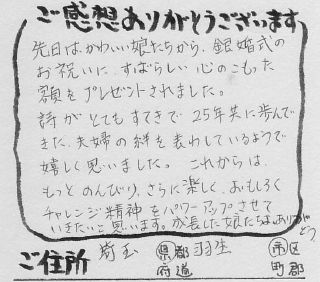 ご感想ありがとうございます
先日は、かわいい娘たちから、銀婚式の
お祝いに、すばらしい心のこもった
額をプレゼントされました。
詩がとてもすてきで25年共に歩んで
きた夫婦の絆を表わしているようで
嬉しく思いました。これからは、
もっとのんびり、さらに楽しく、おもしろく
チャレンジ精神をパワーアップさせて
いきたいと思います。成長した娘たちは、ありがとう
ご住所 埼玉 都道府県 羽生 市区町郡